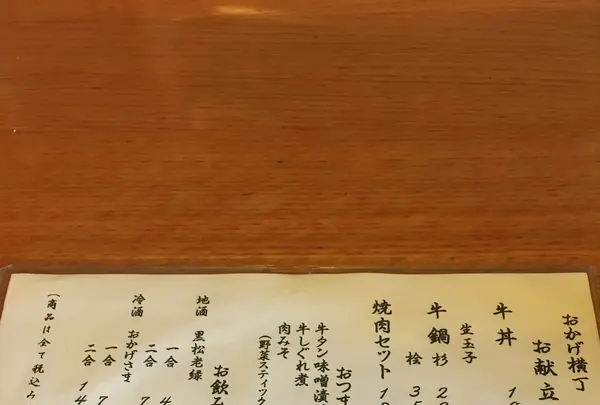 おかげ横丁
お献立
牛丼
生玉子
牛鍋 杉 2
桧 3
焼肉セット 1
おつ
牛タン味噌漬
牛しぐれ煮
肉みそ
(野菜スティック
お飲み
地酒 黒松老緑
一合 4
二合 7
冷酒 おかげさま
一合 7
二合 14
(商品は全て税込み